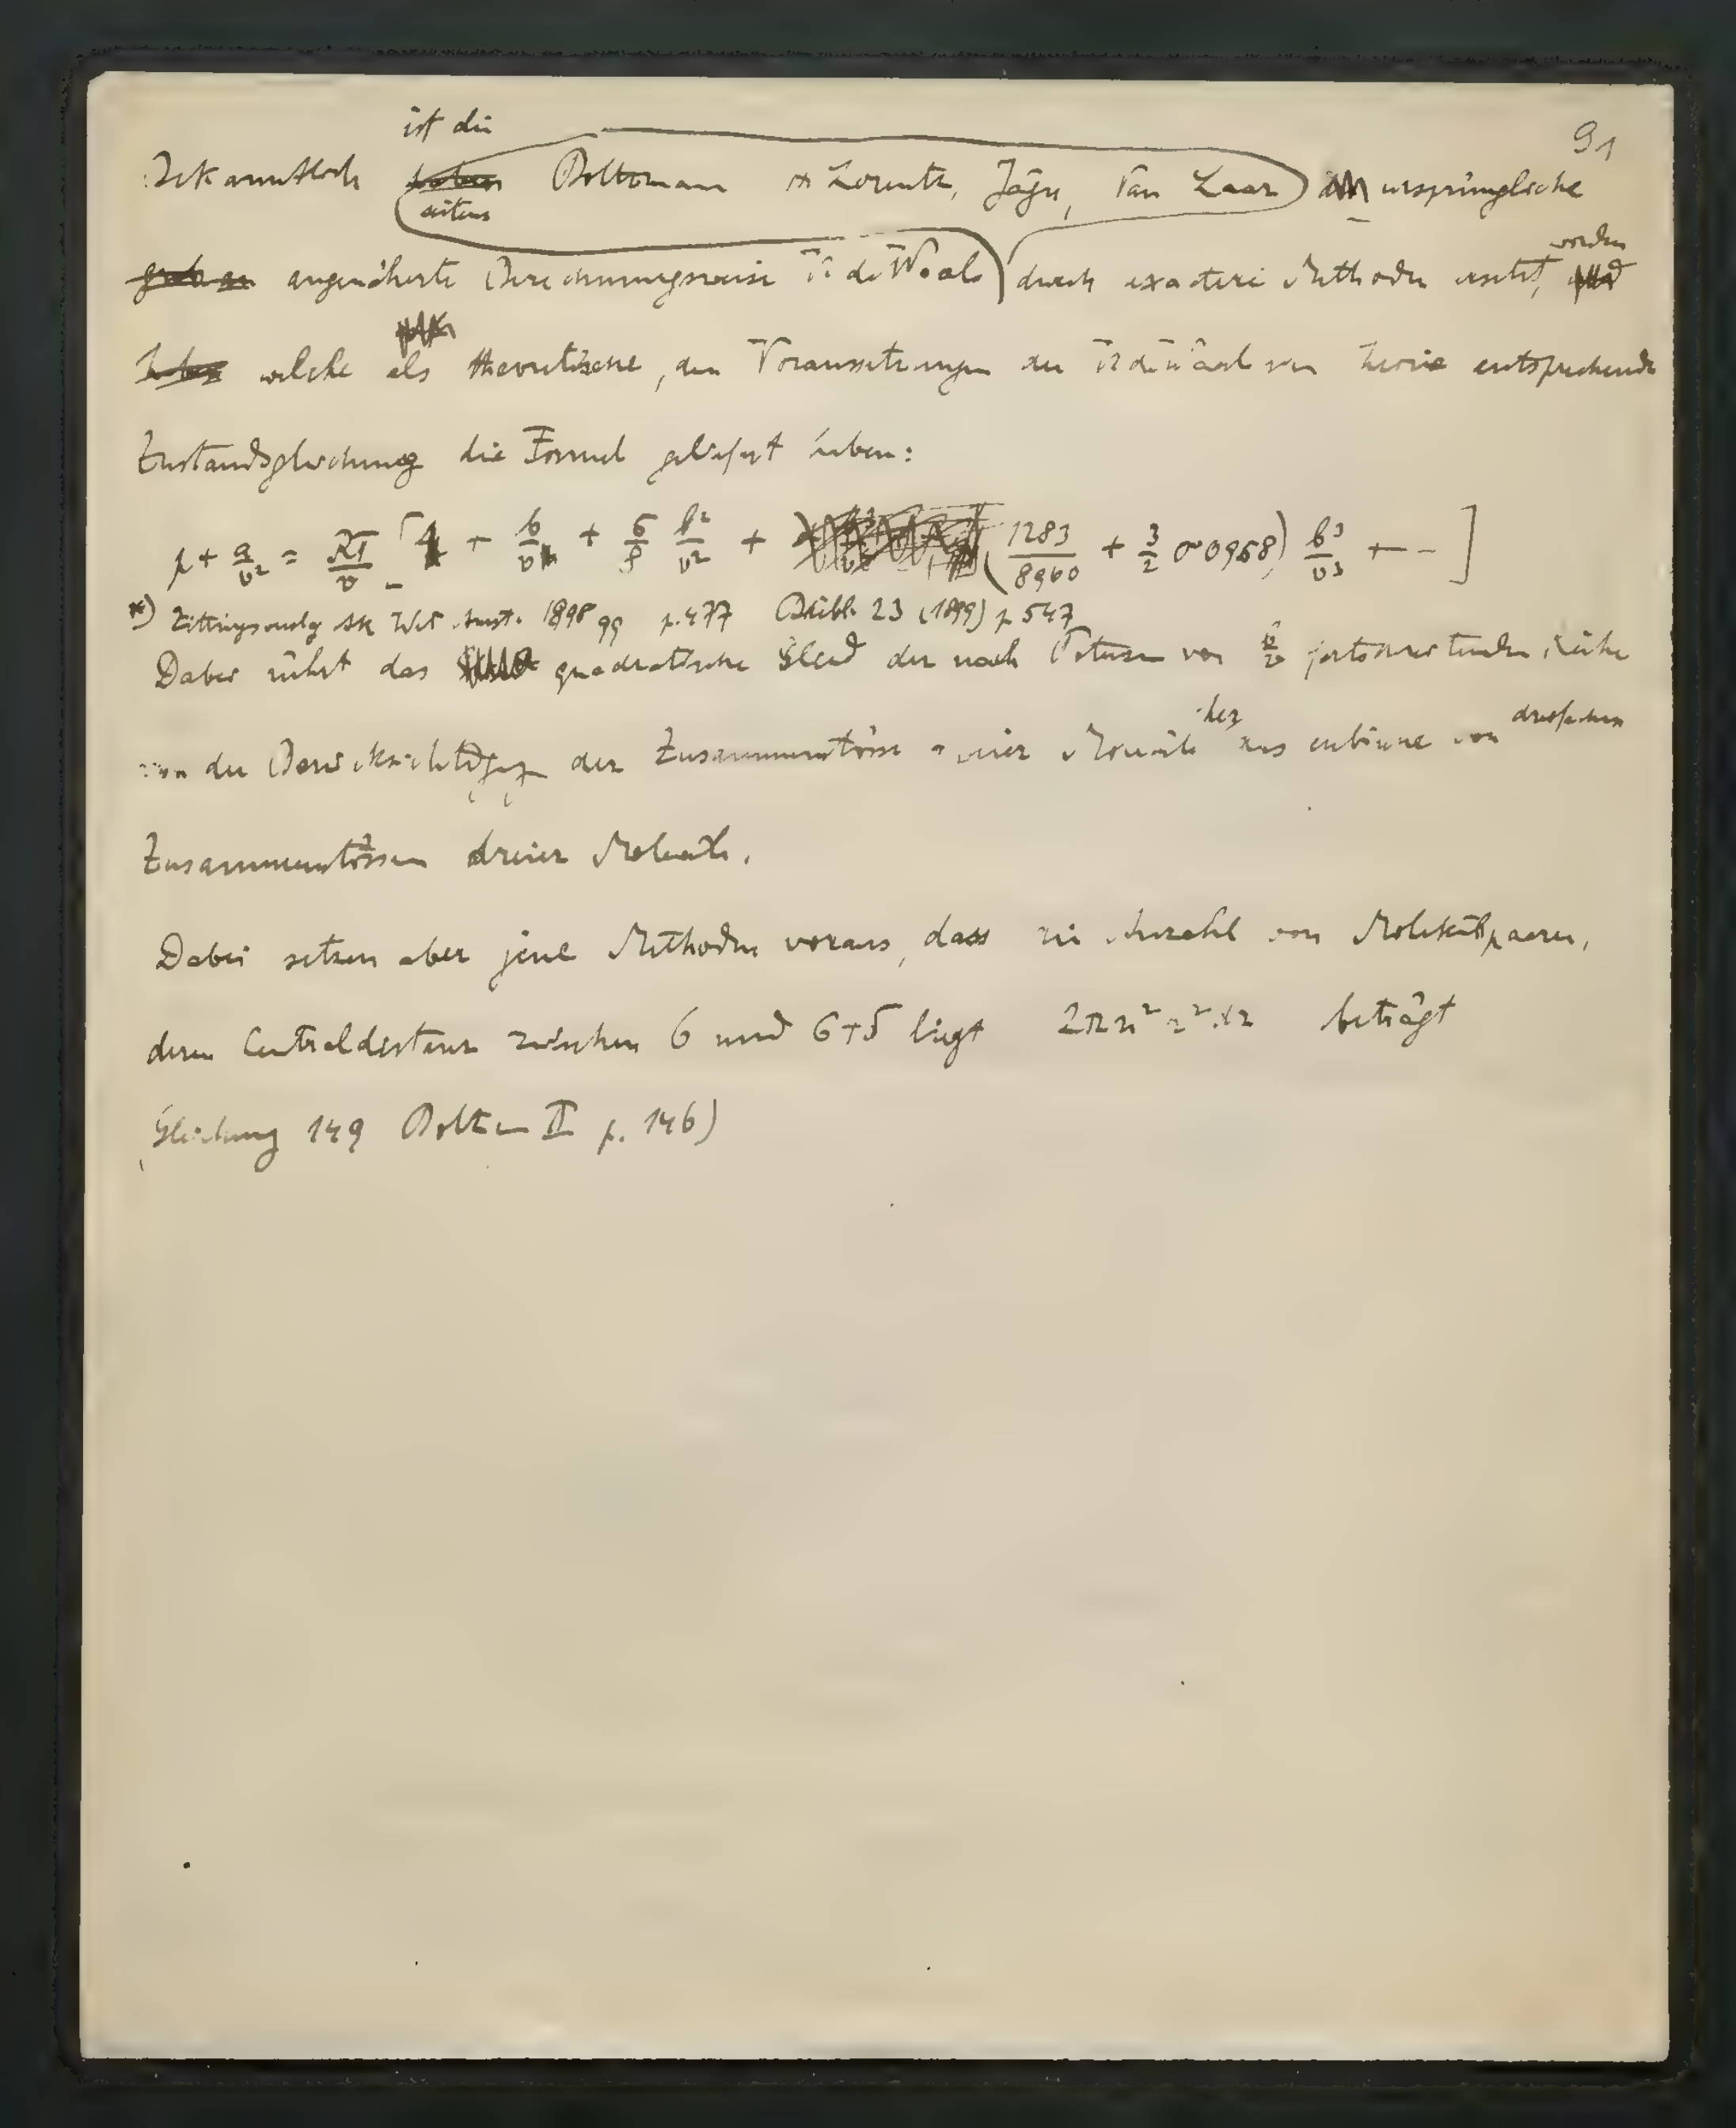 91
ist die
Bekanntlich haben Boltzmann H Lorentz, Jäger, Van Laar ursprüngliche
seitens
worden
grob an angenäherte Berechnungsweise V. de Waals durch exactere Methoden ersetzt, und
haben welche als theoretische, den Voraussetzungen der V. de Waals'schen Theorie entsprechende
Zustandsgleichung die Formel geliefert haben:
p + a/v² = RT/v [1 + b/v + 5/8 b²/v² + (1283/8960 + 3/2 · 0·0958) b³/v³ + - ]
*) Zittingsversl Ak Wet Amst. 1898 99 p. 477 Beibl. 23 (1899) p 547
Dabei rührt das quadratische Glied der nach Potenzen von b/v fortschreitenden Reihe
her dreifachen
von der Berücksichtigung der Zusammenstösse zweier Moleküle
Zusammenstössen dreier Moleküle.
Dabei setzen aber jene Methoden voraus, dass die Anzahl von Molekülpaaren,
deren Centraldistanz zwischen σ und σ+δ liegt 2πn² beträgt
(Gleichung 149 Boltzm II p. 146)